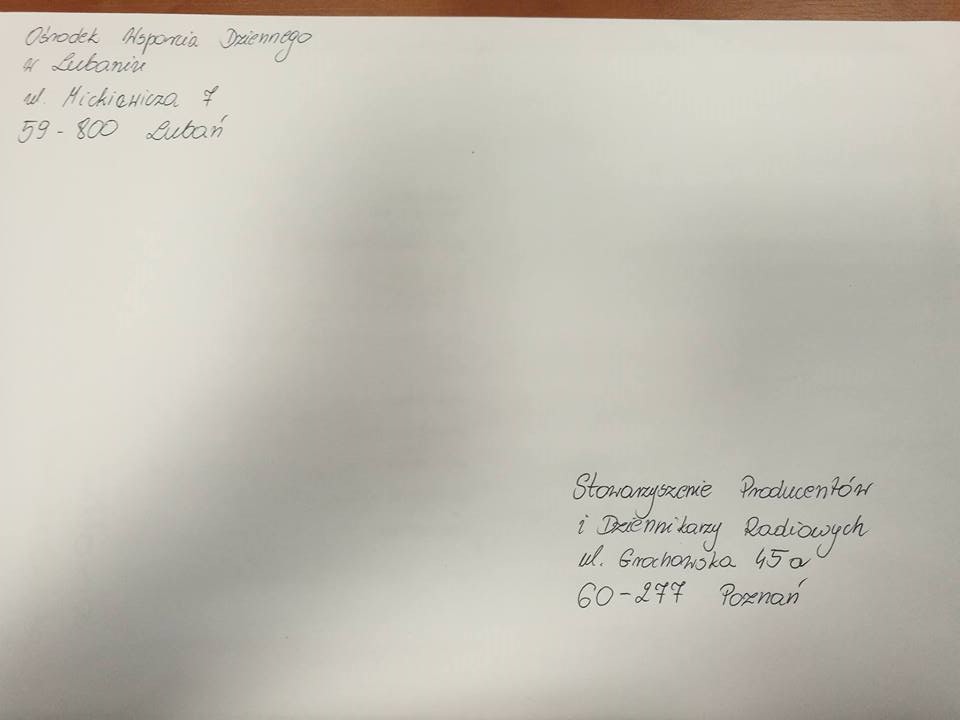 Ośrodek Wsparcia Dziennego
w Lubaniu
ul. Mickiewicza 7
59-800 Lubań
Stowarzyszenie Producentów
i Dziennikarzy Radiowych
ul. Grochowska 45a
60-277 Poznań